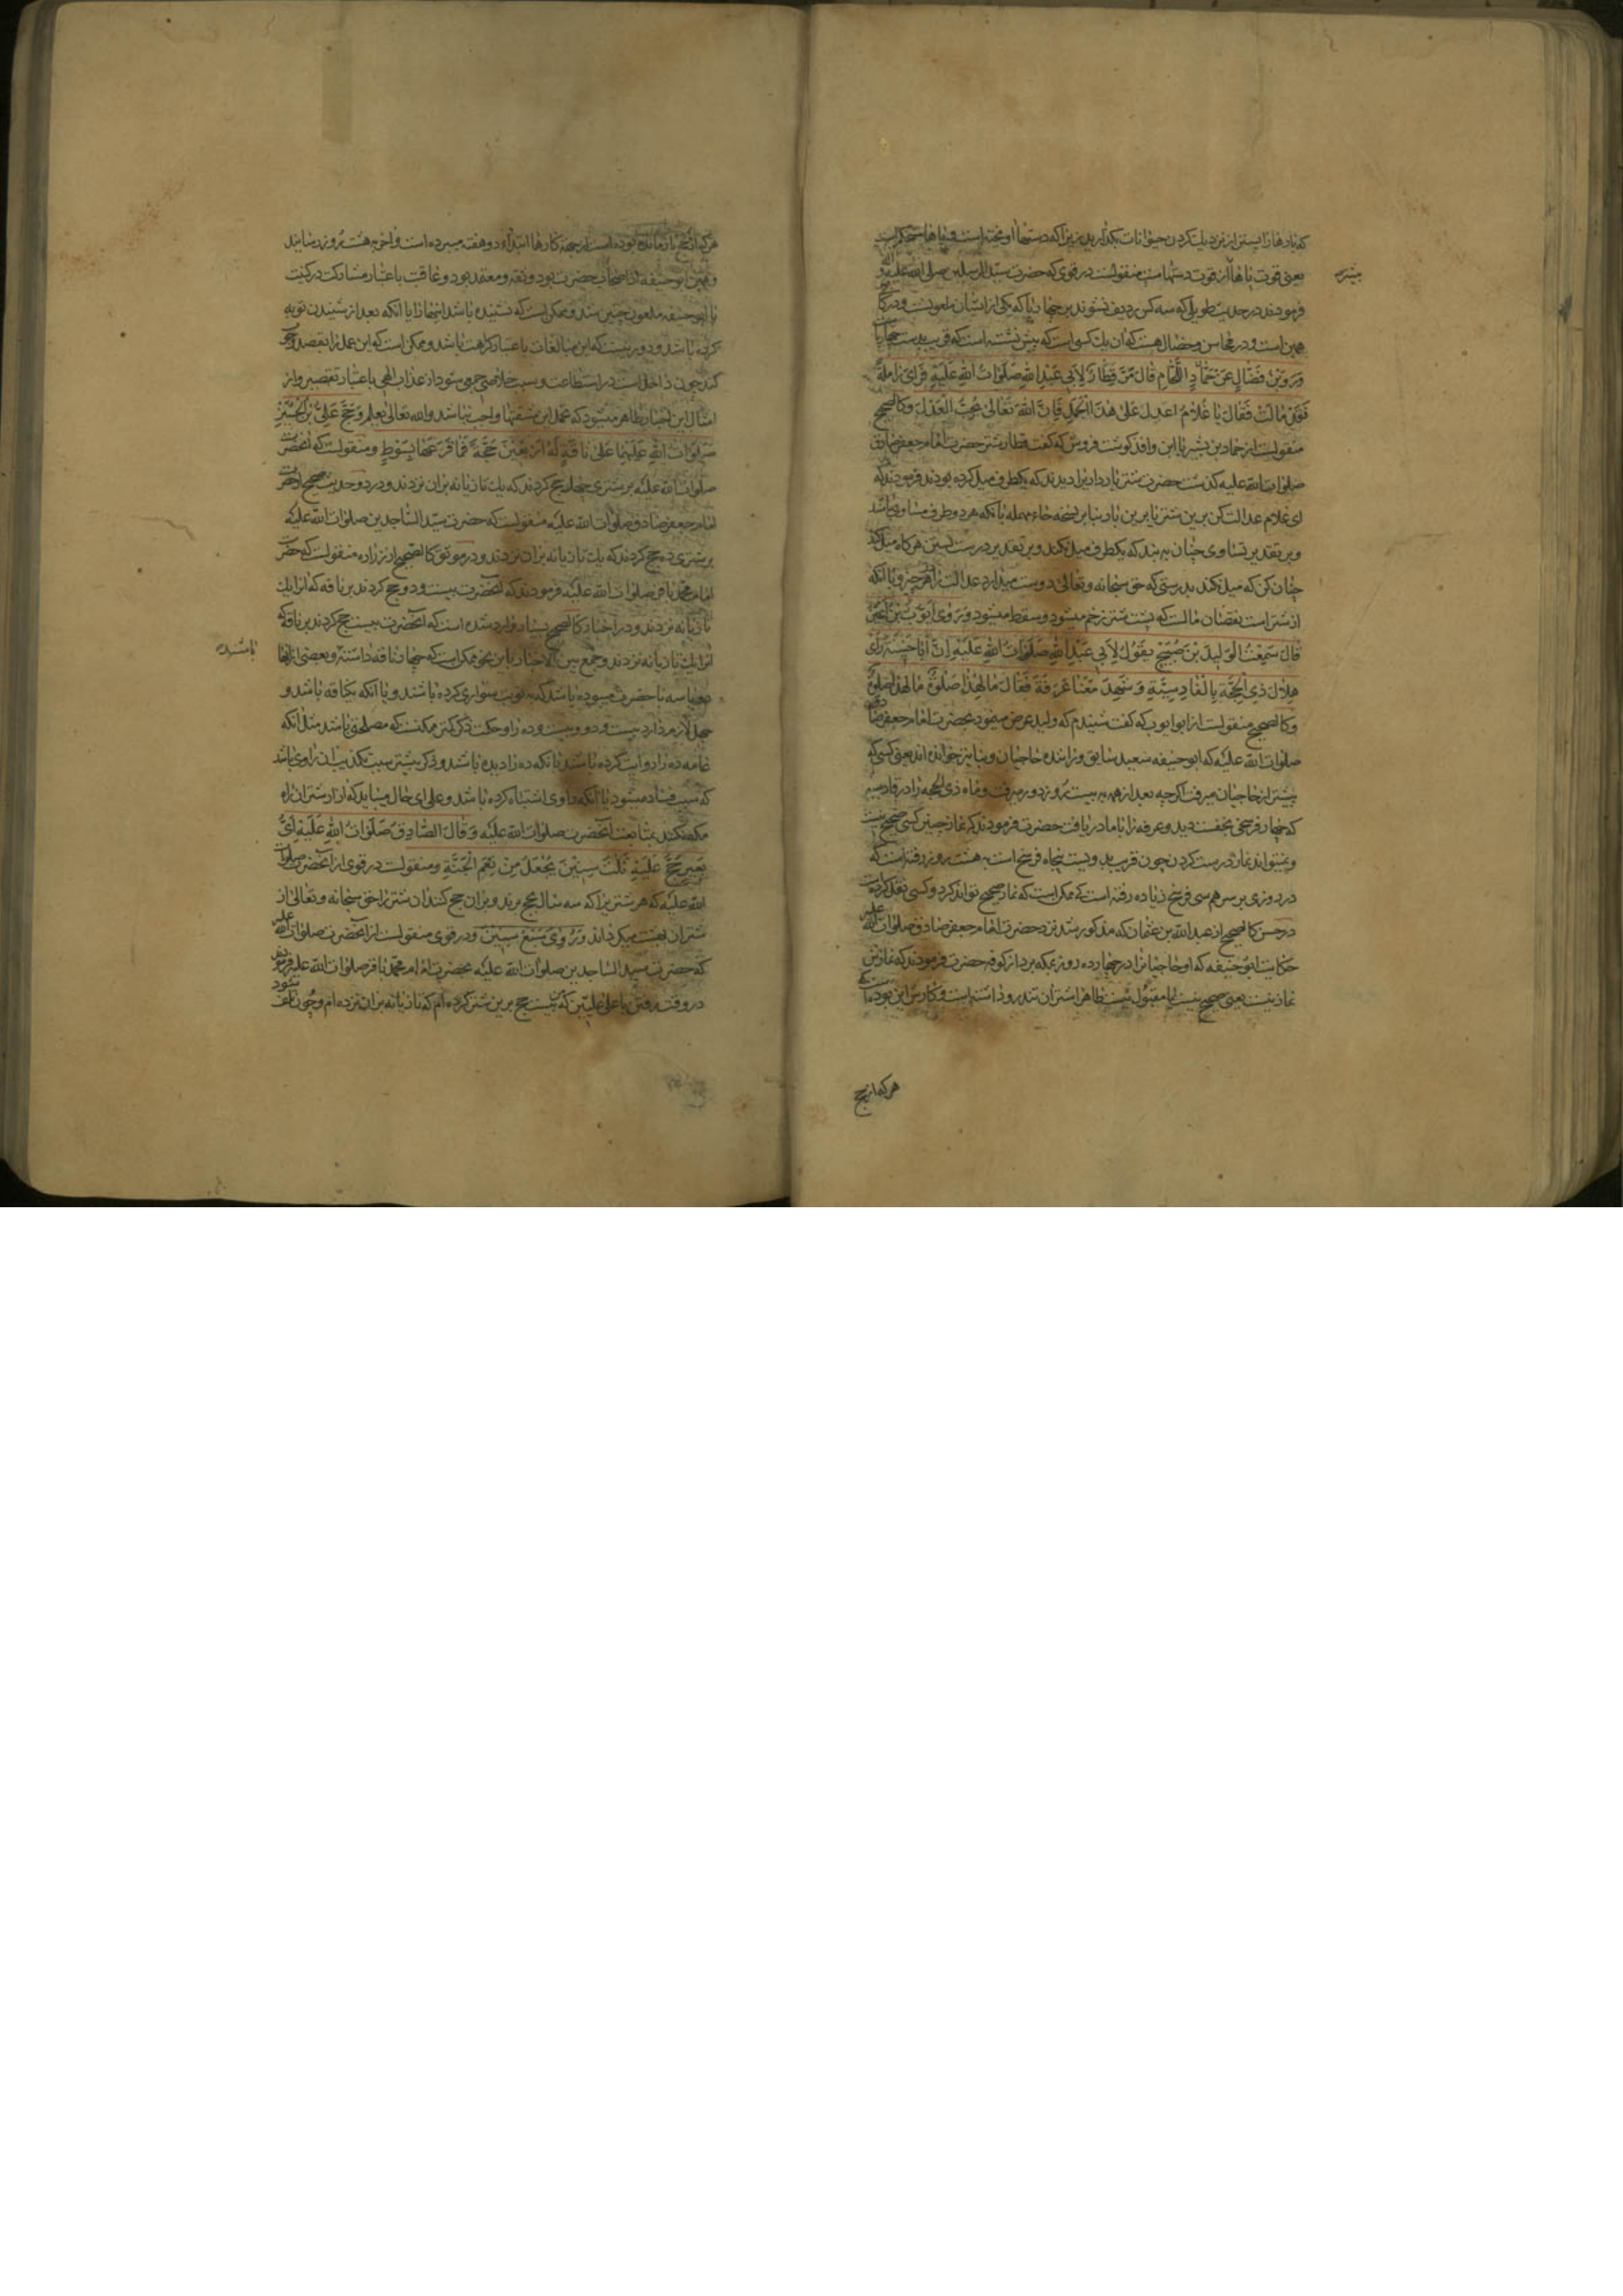 که بارها را پستر از نزدیک کردن حیوانات بگذارید زیرا که دستها آویخته است و پاها محکم است
یعنی قوت پاها از قوت دستهاست منقولست در قوی که حضرت سید المرسلین صلی الله علیه و آله
فرمودند در حدیث طویلی که سه کس ردیف نشوند بر چهارپا که یکی از ایشان ملعونست و در کافی
همین است و در محاسن و خصال هست که آن یک کسی است که پیش نشسته است که قریب بدست چهارپا
وَرَوَی ابْنُ فَضّالٍ عَنْ حَمّادٍ اللَّحّامِ قالَ مَرَّ قِطارٌ لِاَبی عَبْدِ اللهِ صَلَواتُ اللهِ عَلَیْهِ فَرَأی زامِلَةً
قَدْ مالَتْ فَقالَ یا غُلامُ اعْدِلْ عَلی هذَا الْجَمَلِ فَاِنَّ اللهَ تَعالی یُحِبُّ الْعَدْلَ و کالصحیح
منقولست از حماد بن بشیر یا ابن واقد گوشت فروش که گفت قطار شتر حضرت امام جعفر صادق
صلوات الله علیه گذشت حضرت شتر بارداری را دیدند که یکطرف میل کرده بود فرمودند که
ای غلام عدالت کن برین شتر یا برین بار بنابر نسخه حاء مهمله یا آنکه هر دو طرف مساوی باشد
و بر تقدیر تساوی چنان به بند که یکطرف میل نکند و بر تقدیر درست بستن هرگاه میل کند
چنان کن که میل نکند بدرستی که حق سبحانه و تعالی دوست میدارد عدالت را در هر چیز و با آنکه
از شتر است نقصان مالست که پشت شتر زخم میشود و سقط میشود وَرَوی اَیُّوبُ بْنُ اَعْیَنَ
قالَ سَمِعْتُ الْوَلیدَ بْنَ صَبیحٍ یَقُولُ لِاَبی عَبْدِ اللهِ صَلَواتُ اللهِ عَلَیْهِ اِنَّ اَبا حَنیفَةَ رَأی
هِلالَ ذِی الْحِجَّةِ بِالْقادِسِیَّةِ وَشَهِدَ مَعَنا عَرَفَةَ فَقالَ ما لِهذا صَلوةٌ ما لِهذا صَلوةٌ
و کالصحیح منقولست از ابو ایوب که گفت شنیدم که ولید عرض مینمود بحضرت امام جعفر صادق
صلوات الله علیه که ابو حنیفه سعید سابق و راننده حاجیان و بنا نیز خوانده اند یعنی کسی که
پیشتر از حاجیان میرفت اگرچه بعد از همه به بیست روز دور میرفت و ماه ذی الحجه را در قادسیه
که چهار فرسخی نجفست دید و عرفه را با ما دریافت حضرت فرمودند که نماز چنین کسی صحیح نیست
و نمیتواند نماز درست کردن چون قریب بدویست پنجاه فرسخ است به هشت روز رفته است که
در روزی بر سر هم سی فرسخ زیاده رفته است که ممکن است که نماز صحیح تواند کرد و کسی نقل کرده
در حسن کالصحیح از عبد الله بن عثمان که مذکور شد نزد حضرت امام جعفر صادق صلوات الله علیه
حکایت ابو حنیفه که او حاجیان را در چهارده روز بمکه برد از کوفه حضرت فرمودند که نماز این
نماز نیست یعنی صحیح نیست یا مقبول نیست ظاهرا شتران تندرو داشته است و کارش این بوده است که
هر که از حج
هر که از حج بازمانده بوده است از جهة کارها ابتداء دو هفته میبرده است و آخر به هشت روز رسانید
و همین ابو حنیفه از اصحاب حضرت بود و ثقه و معتمد بود و عاقبت باعتبار مشارکت در کنیت
با ابو حنیفه ملعون چنین شد و ممکن است که نشنیده باشد اینها را یا آنکه بعد از شنیدن توبه
کرده باشد و دور نیست که این مبالغات باعتبار کراهت باشد و ممکن است که این عمل را بقصد وجوب
کند چون داخل است در استطاعت و سبب خلاصی جمعی شود از عذاب الهی باعتبار تقصیر و از
امثال این اخبار ظاهر میشود که تحمل این مشقتها واجب نباشد والله تعالی یعلم وَحَجَّ عَلِیُّ بْنُ الْحُسَیْنِ
صَلَواتُ اللهِ عَلَیْهِما عَلی ناقَةٍ لَهُ اَرْبَعینَ حَجَّةً فَما قَرَعَها بِسَوْطٍ و منقولست که آنحضرت
صلوات الله علیه بر شتری چهل حج کردند که یک تازیانه بران نزدند و در دو حدیث صحیح از حضرت
امام جعفر صادق صلوات الله علیه منقولست که حضرت سید الساجدین صلوات الله علیه
بر شتری ده حج کردند که یک تازیانه بران نزدند و در موثق کالصحیح از زراره منقولست که حضرت
امام محمد باقر صلوات الله علیه فرمودند که آنحضرت بیست و دو حج کردند بر ناقه که انرا یک
تازیانه نزدند و در اخبار کالصحیح بسیار وارد شده است که آنحضرت بیست حج کردند بر ناقه که
انرا یک تازیانه نزدند و جمع بین الاخبار باین نحو ممکن است که چهار ناقه داشته و بعضی از آنها
دو یا سه با حضرت میبوده باشد که به نوبت سواری کرده باشند و یا آنکه یکناقه باشد و
چهل لازم دارد بیست و دو و بیست و ده را و حکمت ذکر کمتر ممکنست که مصلحتی باشد مثل آنکه
عامه ده را روایت کرده باشند یا آنکه ده را دیده باشند و ذکر بیشتر سبب تکذیب آن راوی باشد
که سبب فساد میشود یا آنکه راوی اشتباه کرده باشد و علی ای حال میباید که آزار شتران راه
مکه نکند بمتابعت آنحضرت صلوات الله علیه وَقالَ الصّادِقُ صَلَواتُ اللهِ عَلَیْهِ اَیُّ
بَعیرٍ حُجَّ عَلَیْهِ ثَلثَ سِنینَ یُجْعَلُ مِنْ نَعَمِ الْجَنَّةِ و منقولست در قوی از آنحضرت صلوات
الله علیه که هر شتری را که سه سال بحج برند و بران حج کنند آن شتر را حق سبحانه و تعالی از
شتران بهشت میگرداند وَرُوِیَ سَبْعُ سِنینَ و در قوی منقولست از آنحضرت صلوات الله علیه
که حضرت سید الساجدین صلوات الله علیه بحضرت امام محمد باقر صلوات الله علیه فرمودند
در وقت رفتن باعلی علیین که بیست حج برین شتر کرده ام که تازیانه بران نزده ام و چون تلف شود